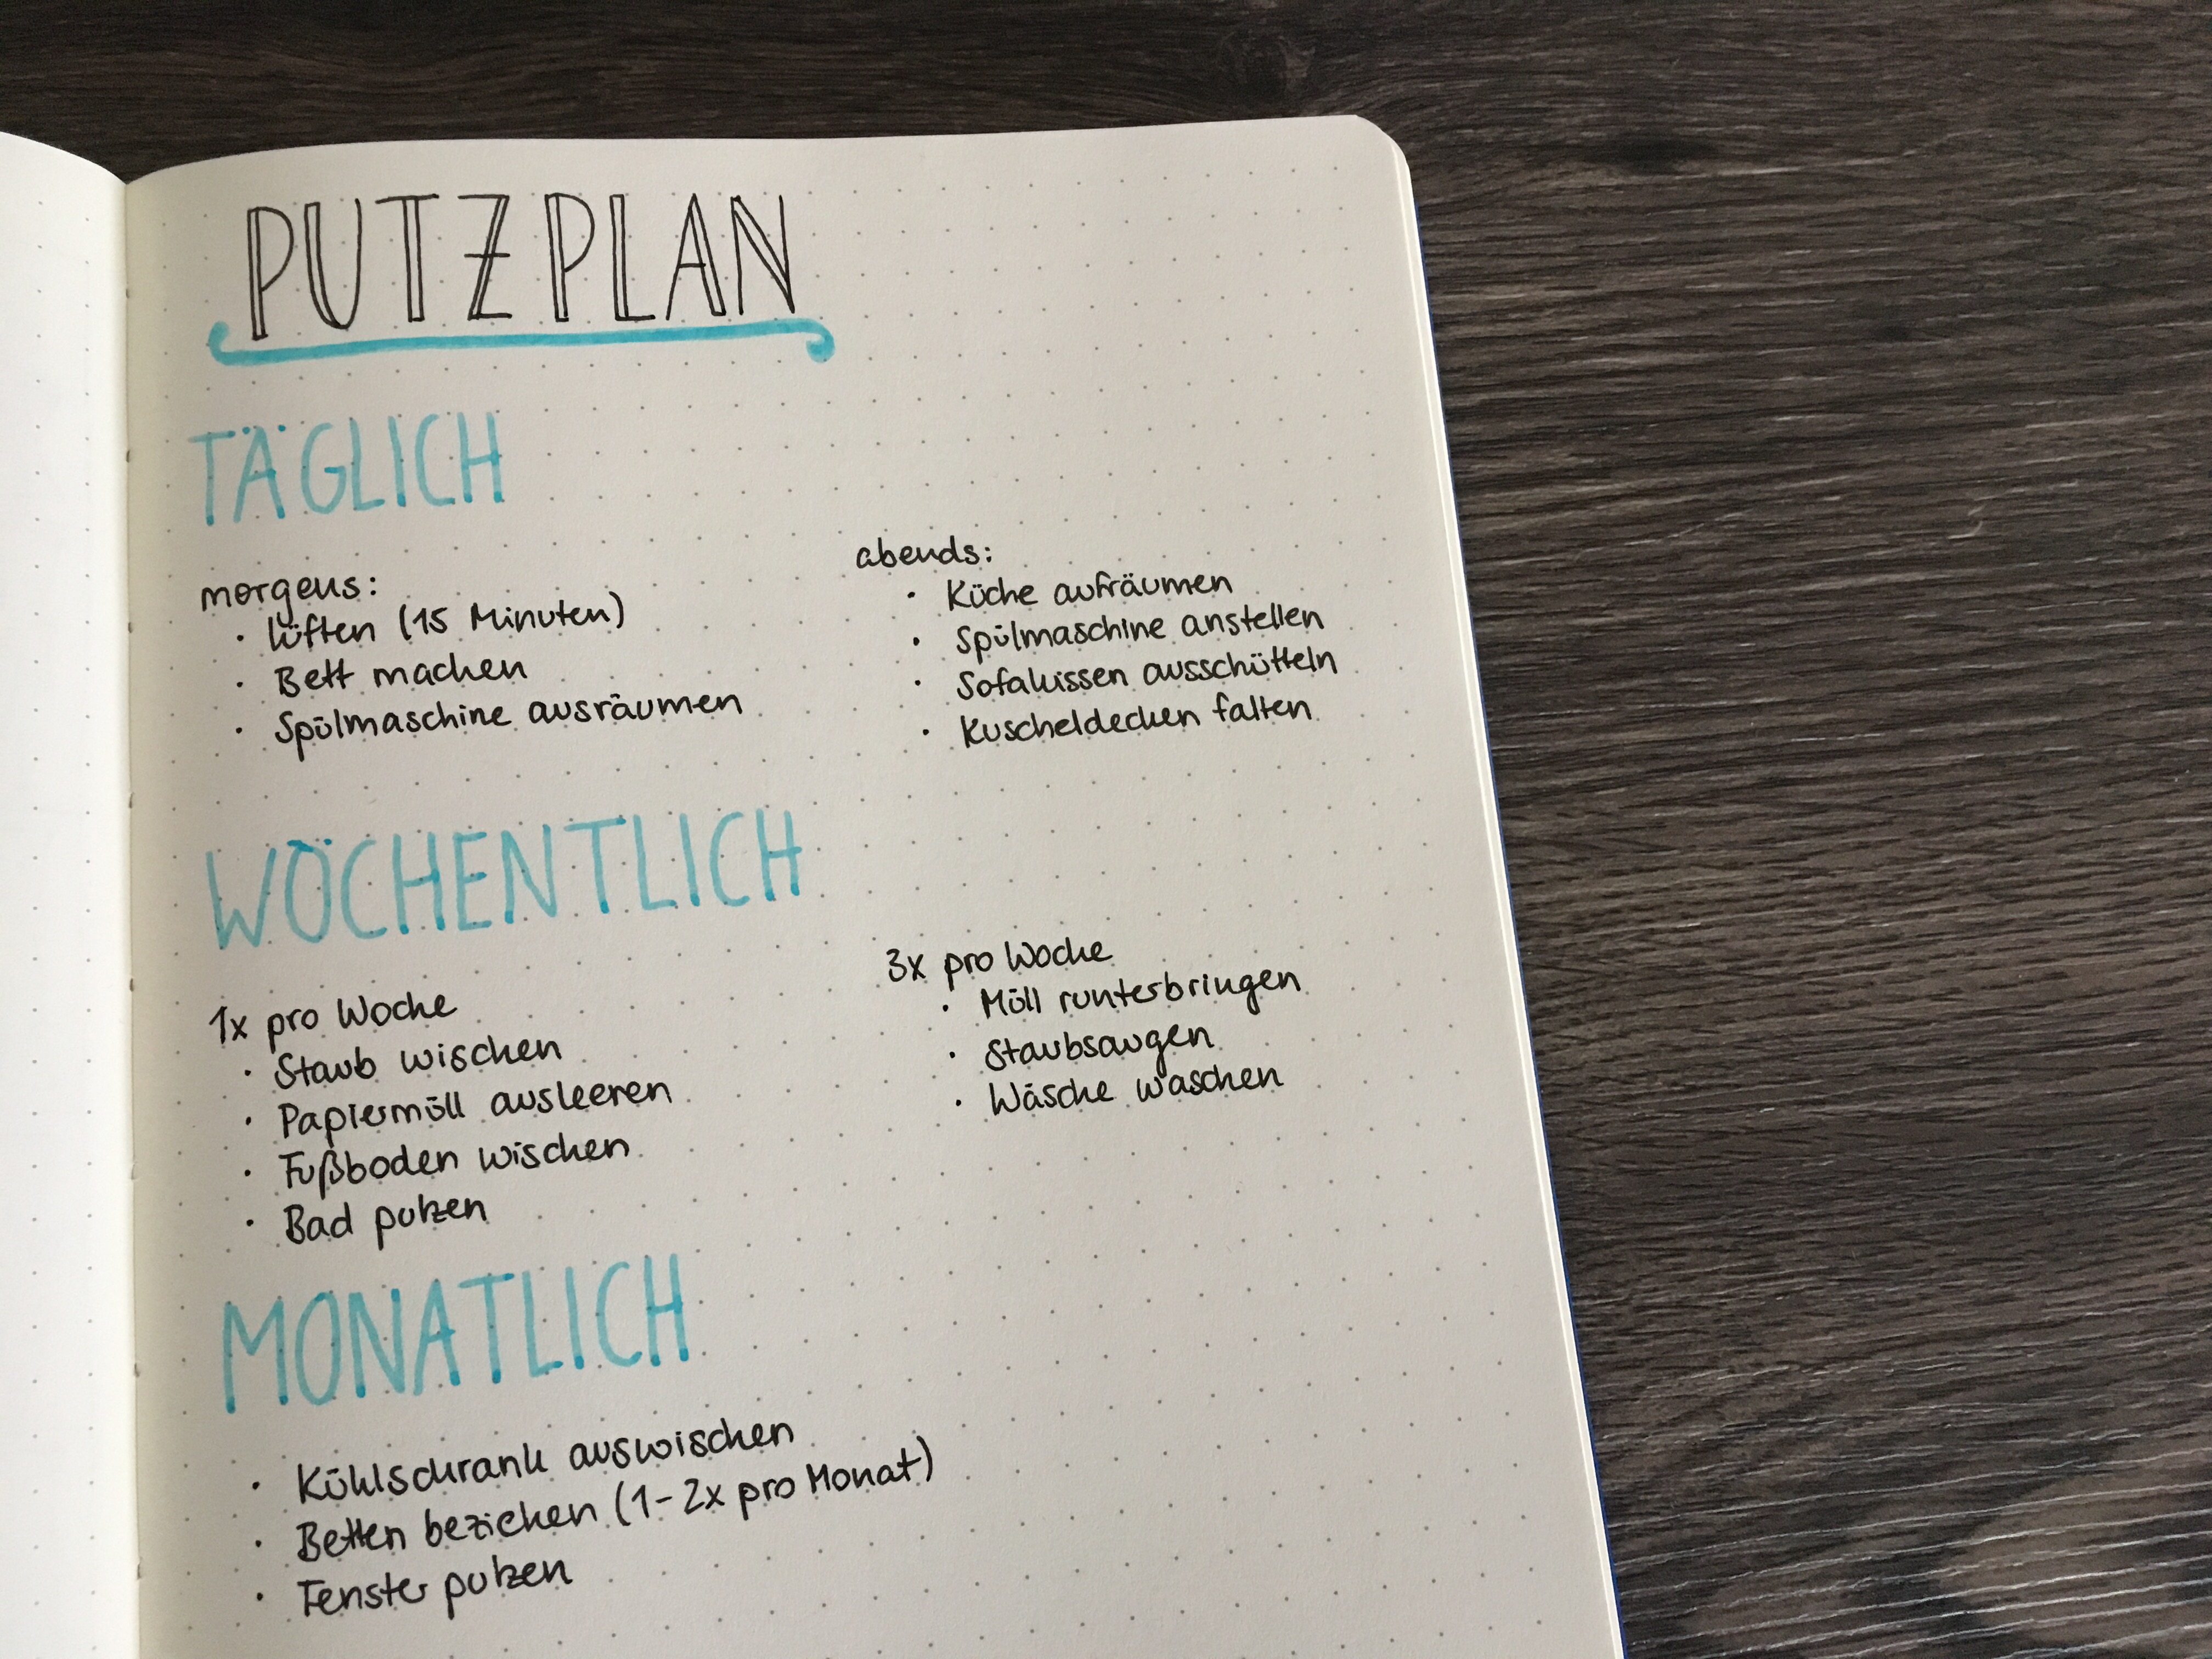 PUTZPLAN
TÄGLICH
morgens:
· lüften (15 Minuten)
· Bett machen
· Spülmaschine ausräumen
abends:
· Küche aufräumen
· Spülmaschine anstellen
· Sofakissen ausschütteln
· Kuscheldecken falten
WÖCHENTLICH
1x pro Woche
· Staub wischen
· Papiermüll ausleeren
· Fußboden wischen
· Bad putzen
3x pro Woche
· Müll runterbringen
· Staubsaugen
· Wäsche waschen
MONATLICH
· Kühlschrank auswischen
· Betten beziehen (1-2x pro Monat)
· Fenster putzen